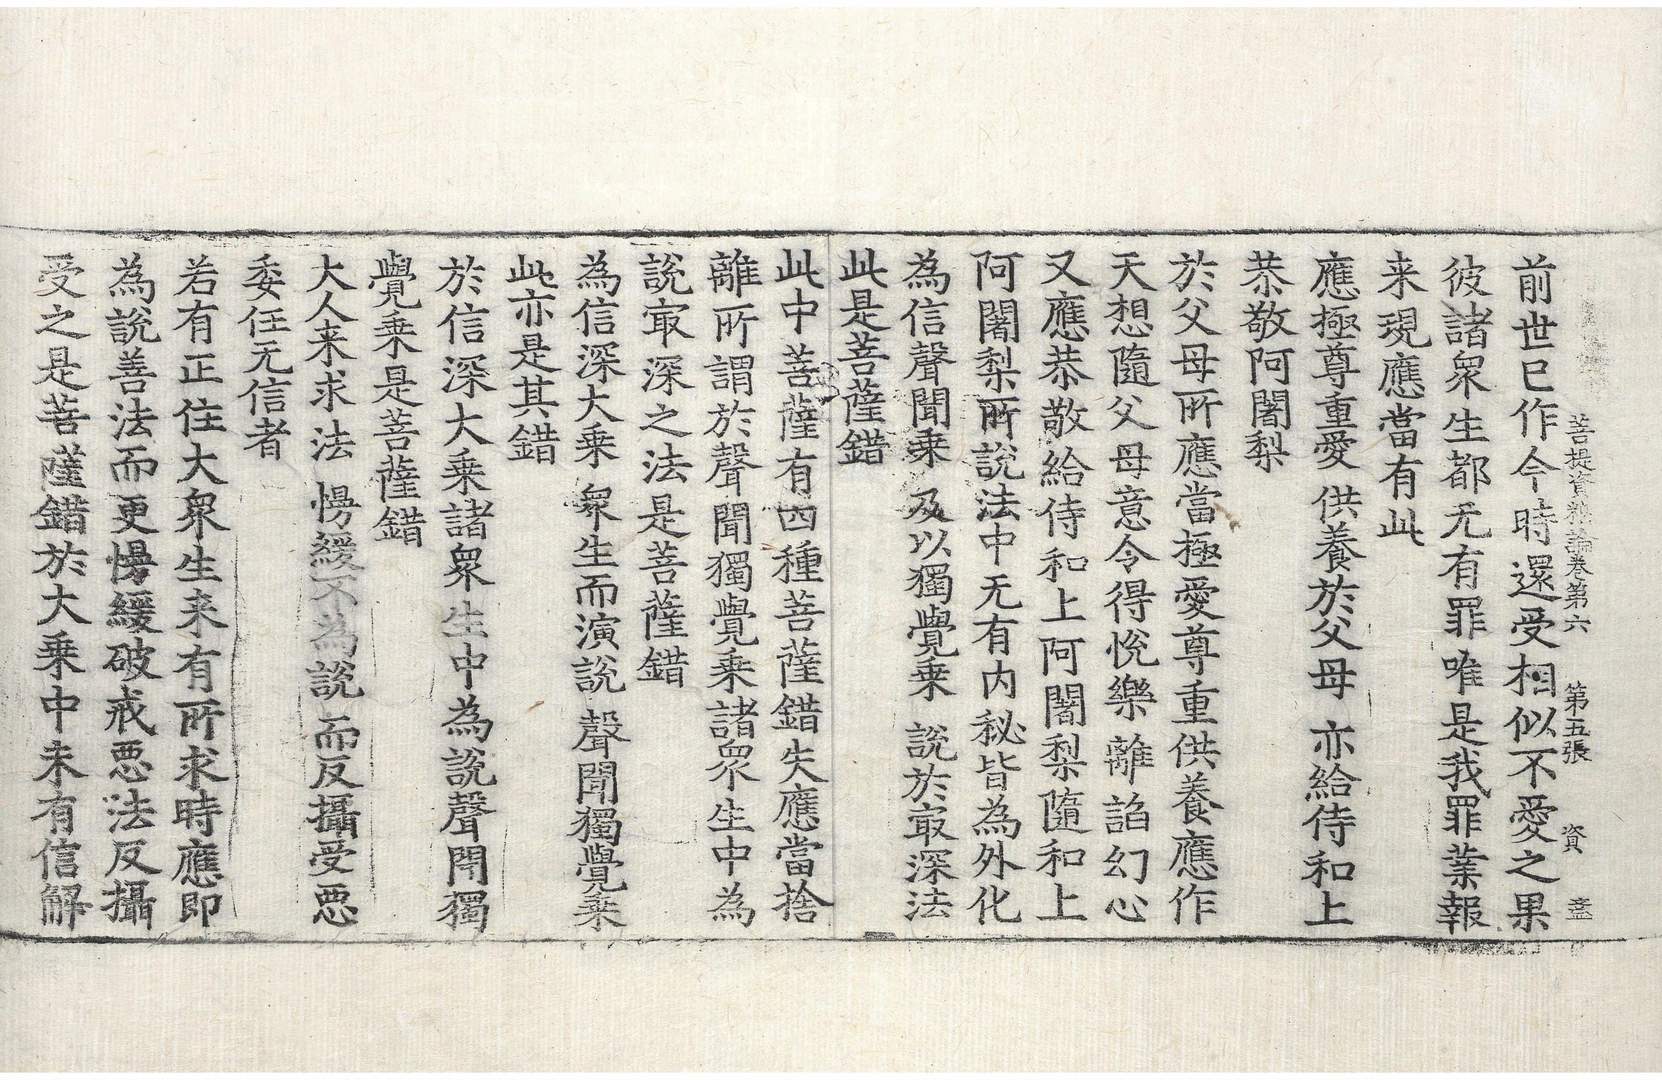 菩提資粮論卷第六 第五張 資 壼
前世已作今時還受相似不愛之果
彼諸衆生都无有罪唯是我罪業報
来現應當有此
應極尊重愛 供養於父母 亦給侍和上
恭敬阿闍梨
於父母所應當極愛尊重供養應作
天想隨父母意令得恱樂離諂幻心
又應恭敬給侍和上阿闍梨隨和上
阿闍梨所說法中无有内秘皆為外化
為信聲聞乗 及以獨覺乗 說於㝡深法
此是菩薩錯
此中菩薩有四種菩薩錯失應當捨
離所謂於聲聞獨覺乗諸衆生中為
說㝡深之法是菩薩錯
為信深大乗 衆生而演說 聲聞獨覺乗
此亦是其錯
於信深大乗諸衆生中為說聲聞獨
覺乗是菩薩錯
大人来求法 慢緩不為說 而反攝受悪
委任无信者
若有正住大衆生来有所求時應即
為說善法而更慢緩破戒悪法反攝
受之是菩薩錯於大乗中未有信解